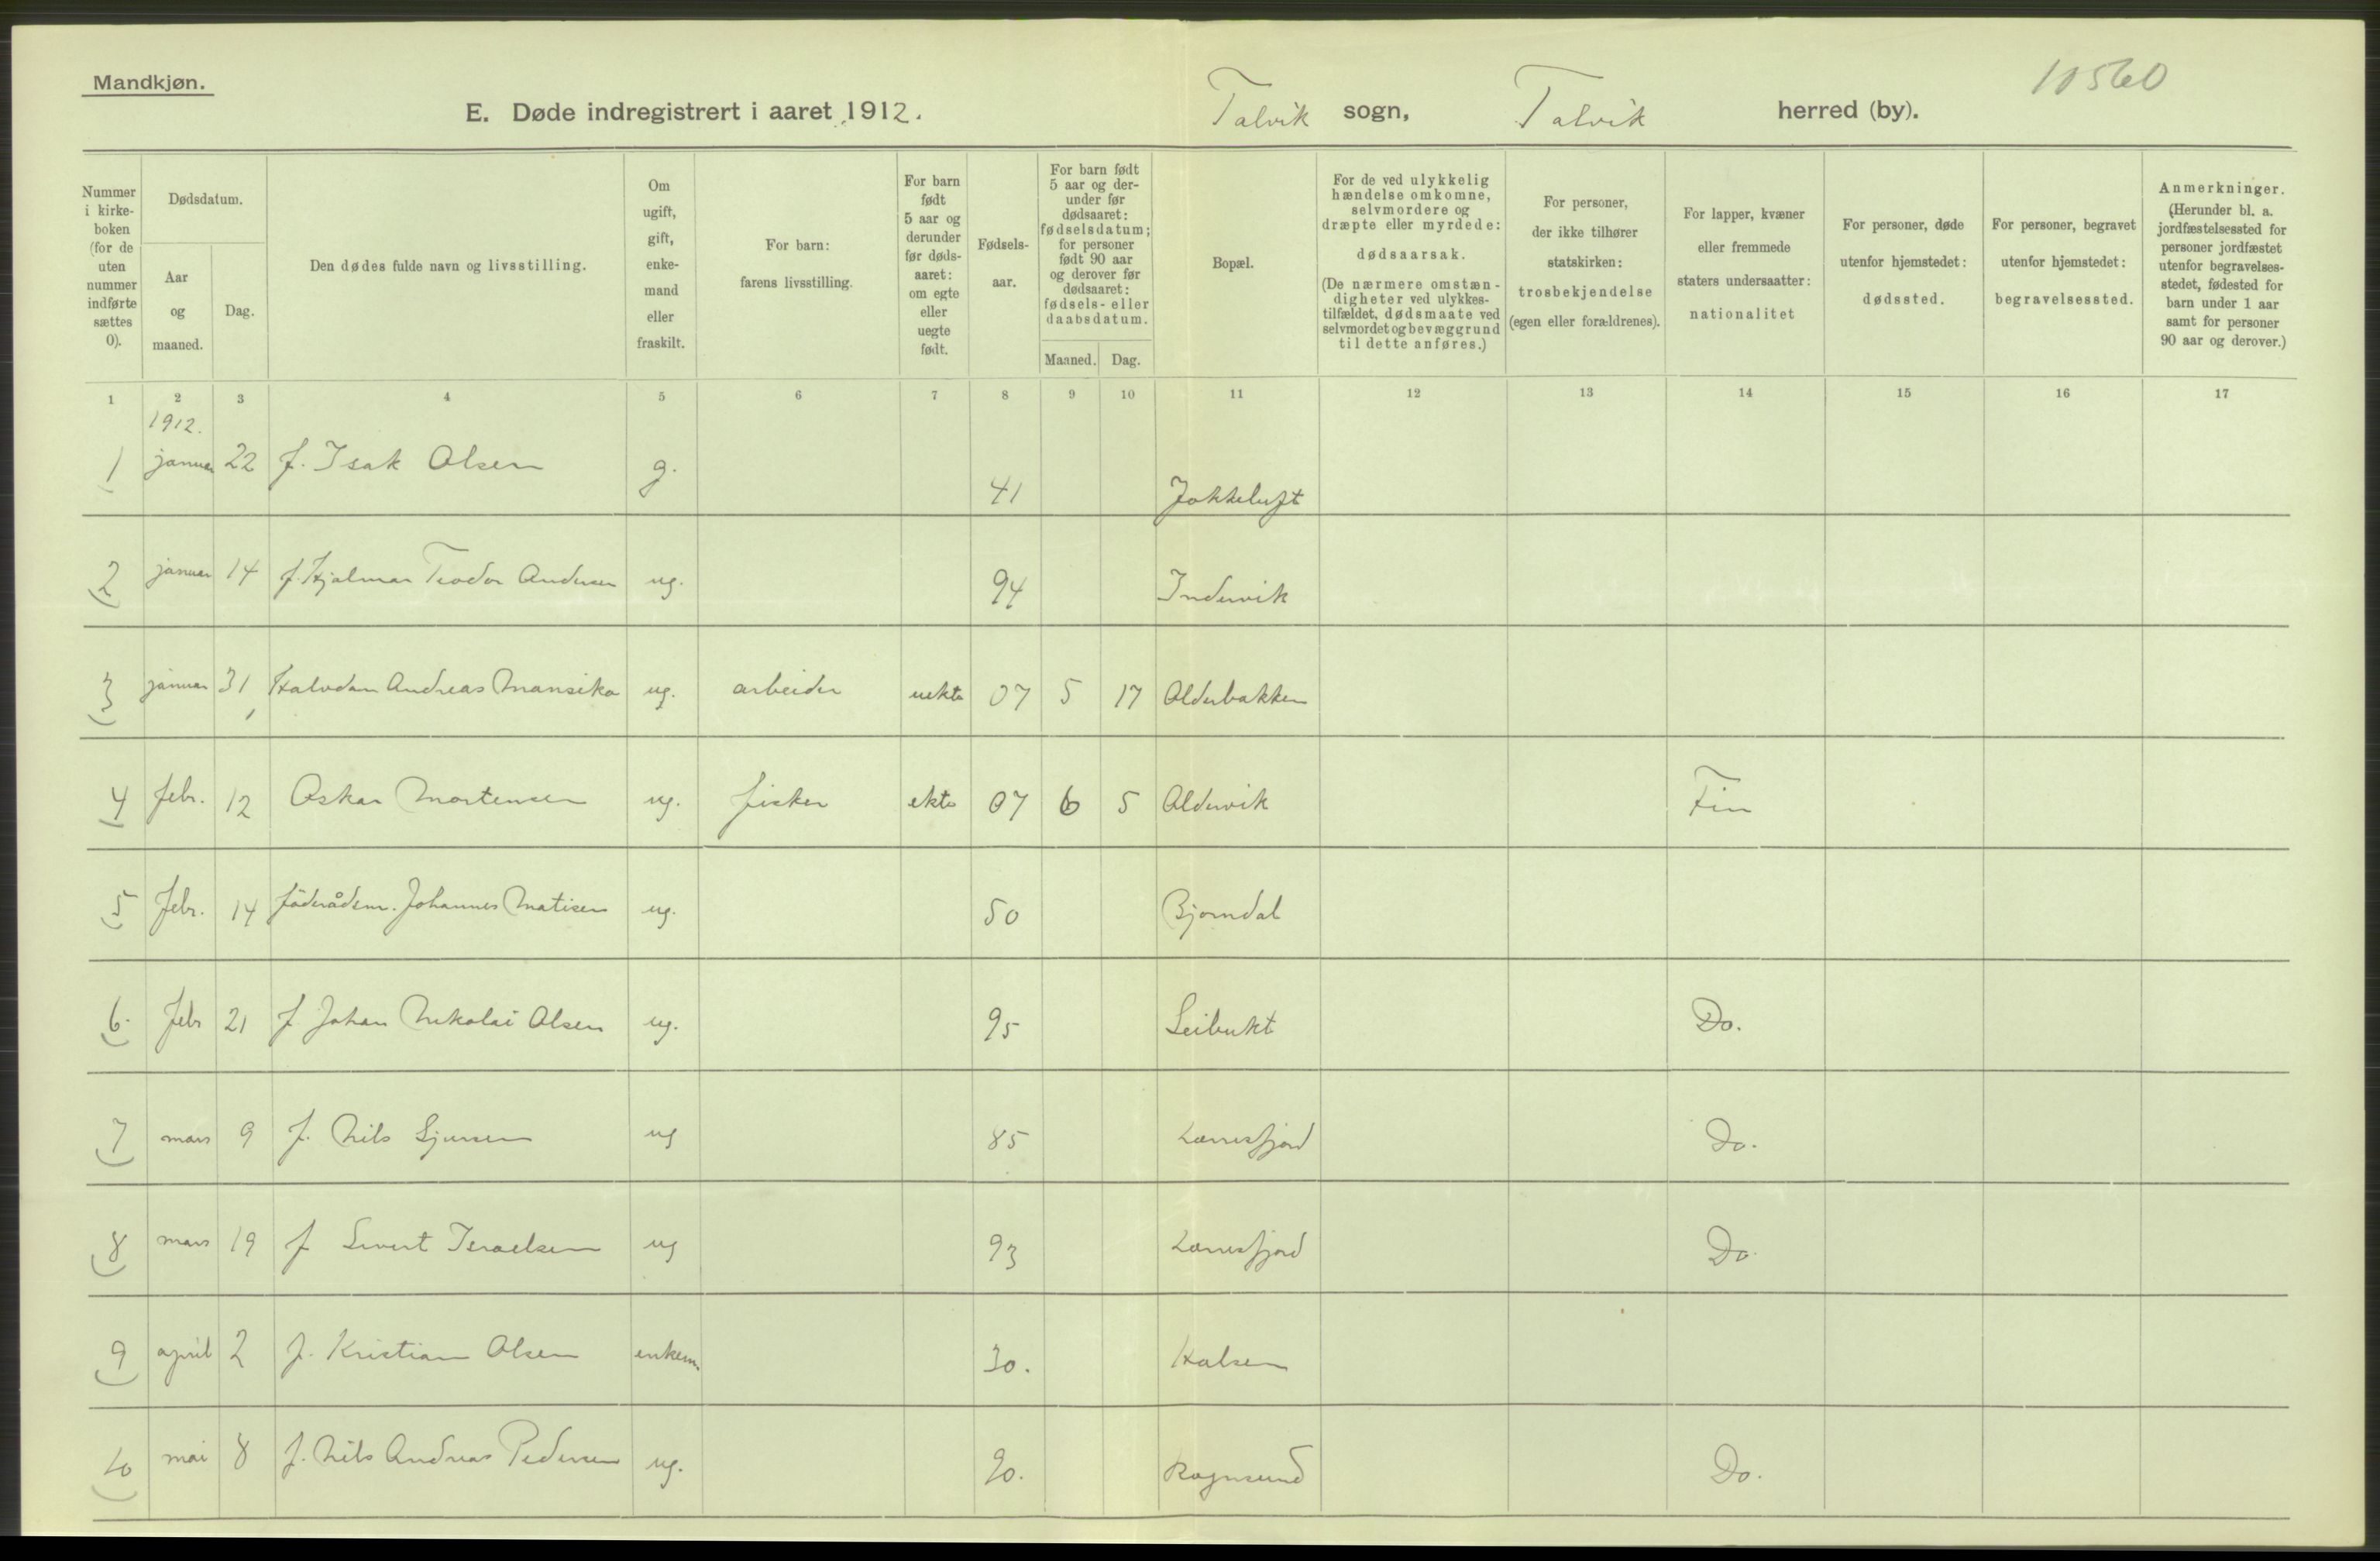 Mandkjøn.
10560
E. Døde indregistrert i aaret 1912. Talvik sogn, Talvik herred (by).
Nummer i kirke-boken (for de uten nummer indførte sættes 0).
Dødsdatum.
Aar og maaned.
Dag.
Den dødes fulde navn og livsstilling.
Om ugift, gift, enke-mand eller fraskilt.
For barn: farens livsstilling.
For barn født 5 aar og derunder før døds-aaret: om egte eller uegte født.
Fødsels-aar.
For barn født 5 aar og der-under før dødsaaret: fødselsdatum; for personer født 90 aar og derover før dødsaaret: fødsels- eller daabsdatum.
Maaned. Dag.
Bopæl.
For de ved ulykkelig hændelse omkomne, selvmordere og dræpte eller myrdede: dødsaarsak. (De nærmere omstæn-digheter ved ulykkes-tilfældet, dødsmaate ved selvmordet og bevæggrund til dette anføres.)
For personer, der ikke tilhører statskirken: trosbekjendelse (egen eller forældrenes).
For lapper, kvæner eller fremmede staters undersaatter: nationalitet
For personer, døde utenfor hjemstedet: dødssted.
For personer, begravet utenfor hjemstedet: begravelsessted.
Anmerkninger. (Herunder bl. a. jordfæstelsessted for personer jordfæstet utenfor begravelses-stedet, fødested for barn under 1 aar samt for personer 90 aar og derover.)
1 2 3 4 5 6 7 8 9 10 11 12 13 14 15 16 17
1912.
1 januar 22 f. Isak Olsen g. 41 Jokkeluft
2 januar 14 f. Hjalmar Teodor Andersen ug. 94 Indervik
3 januar 31 Halvdan Andreas Mansika ug. arbeider uekte 07 5 17 Olderbakken
4 febr. 12 Oskar Mortensen ug. fisker ekte 07 6 5 Oldervik Fin
5 febr. 14 föderådsm. Johannes Matisen ug. 50 Bjorndal
6 febr 21 f Johan Nikolai Olsen ug. 95 Leibukt Do.
7 mars 9 f. Nils Sjursen ug 85 Do.
8 mars 19 f Sivert Israelsen ug 93 Do
9 april 2 f. Kristian Olsen enkem. 30. Halsen
10 mai 8 f. Nils Andreas Pedersen ug. 90. Rognsund Do.